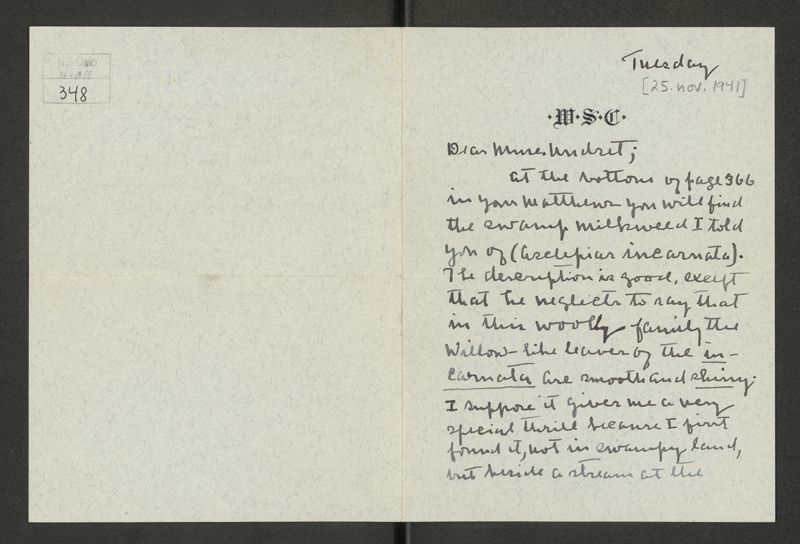 348
Tuesday
[25. nov. 1941]
·W·S·C·
Dear Mme. Undset;
at the bottom of page 366
in your Matthews you will find
the swamp milkweed I told
you of (Asclepias incarnata).
The description is good, except
that he neglects to say that
in this woolly family the
willow-like leaves of the in-
carnata are smooth and shiny.
I suppose it gives me a very
special thrill because I first
found it, not in swampy land,
but beside a stream at the